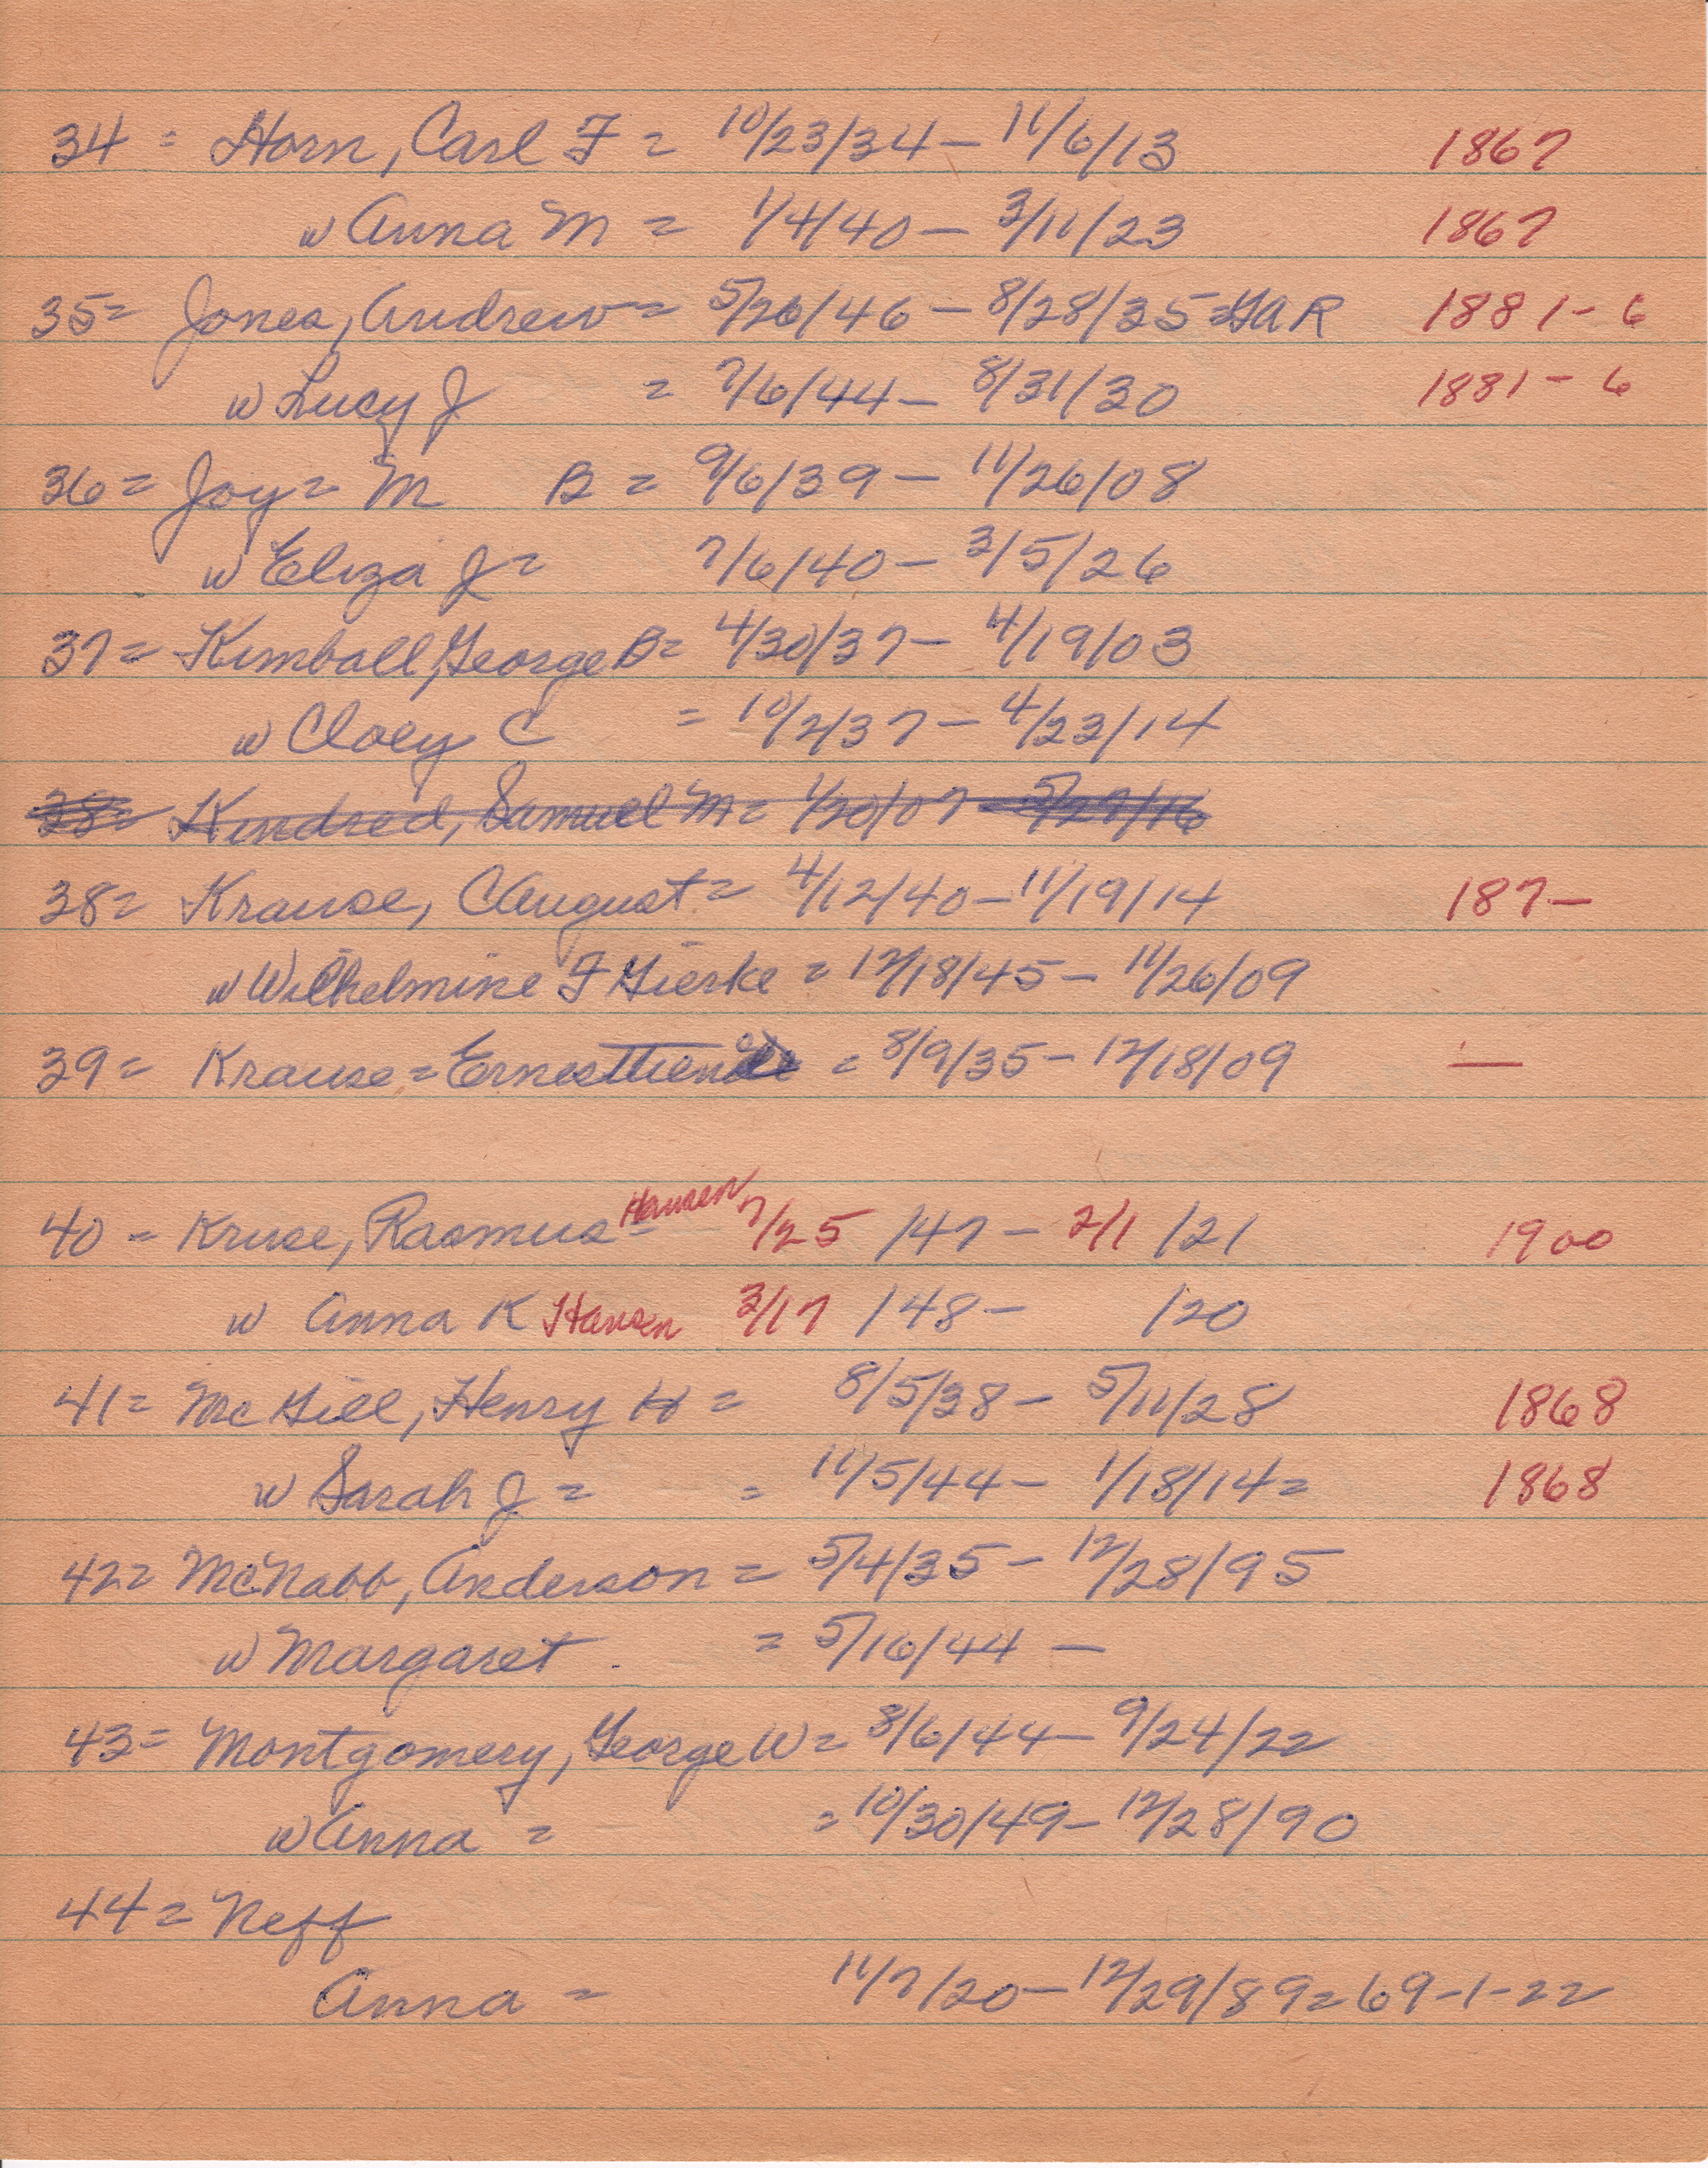 34 = Horn, Carl F = 10/23/34 - 11/6/13 1867
w Anna M = 1/4/40 - 3/11/23 1867
35= Jones, Andrew = 5/26/46 - 8/28/35=GAR 1881-6
w Lucy J = 7/6/44 - 8/31/30 1881-6
36= Joy= M B = 9/6/39 - 11/26/08
w Eliza J = 7/6/40 - 3/5/26
37= Kimball, George B= 4/30/37 - 4/19/03
w Cloey C = 10/2/37 - 4/23/14
38= Kindred, Samuel M= 1/20/07 - 5/27/16
38= Krause, C August = 4/12/40 - 11/19/14 187-
w Wilhelmine F Gierke = 12/18/45 - 11/26/09
39= Krause = = 8/9/35 - 12/18/09 —
40 = Kruse, Rasmus = Hansen 7/25 /47 - 2/1 /21 1900
w Anna K Hansen 3/17 /48 - /20
41= McGill, Henry H = 8/5/38 - 5/11/28 1868
w Sarah J = = 11/5/44 - 1/18/14= 1868
42= McNabb, Anderson = 5/4/35 - 12/28/95
w Margaret = 5/16/44 -
43= Montgomery, George W = 8/6/44 - 9/24/22
w Anna = = 10/30/49 - 12/28/90
44= Neff
Anna = 11/7/20 - 12/29/89=69-1-22